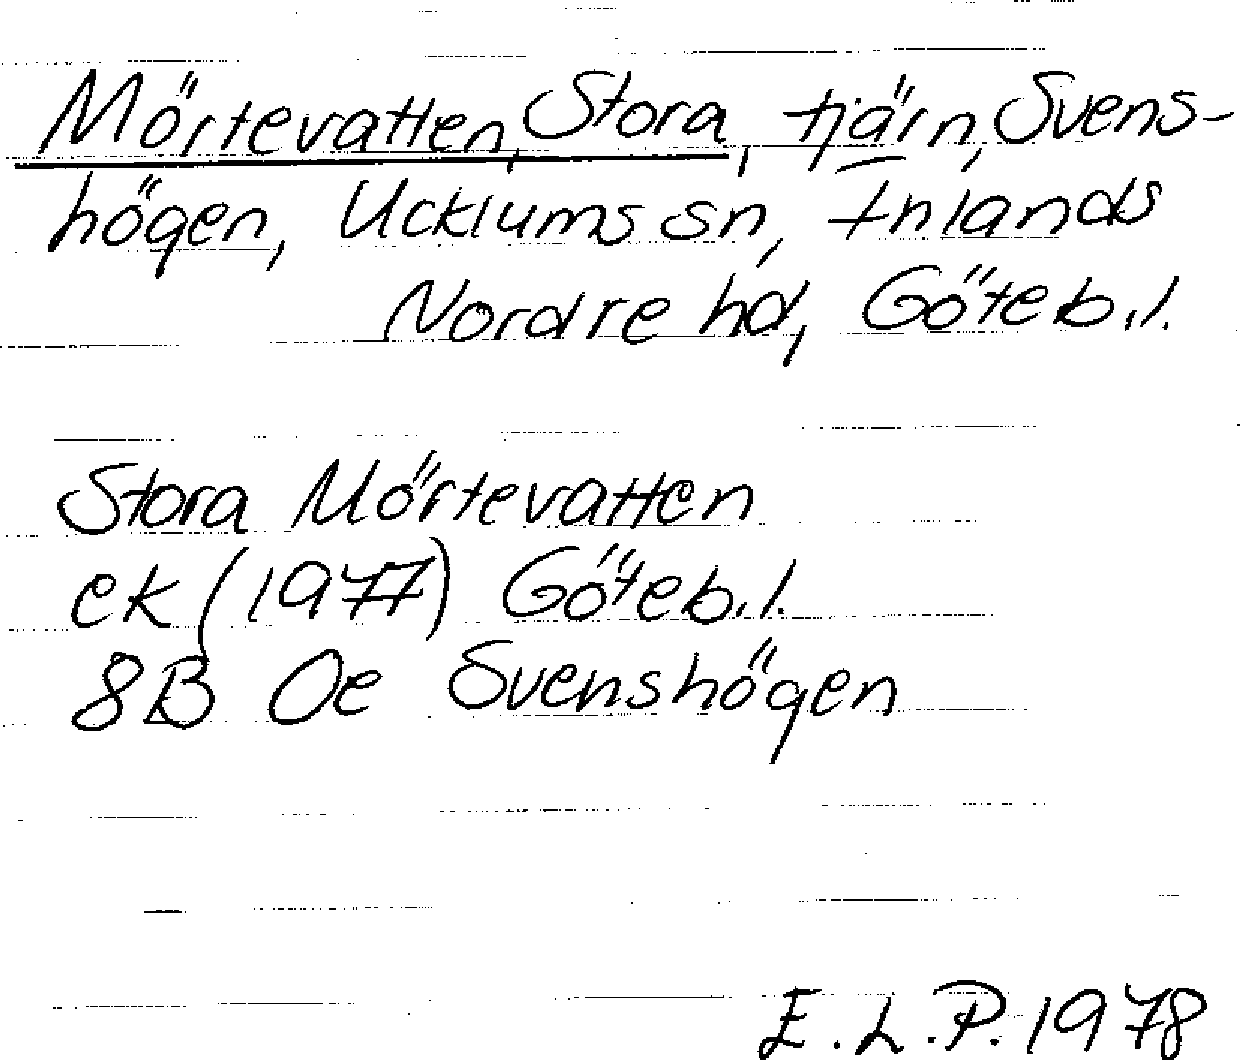 Mörtevatten, Stora, tjärn, Svens-
högen, Ucklums sn, Inlands
Nordre hd, Göteb.l.
Stora Mörtevatten
ek (1977) Göteb.l.
8B 0e Svenshögen
E.L.P. 1978